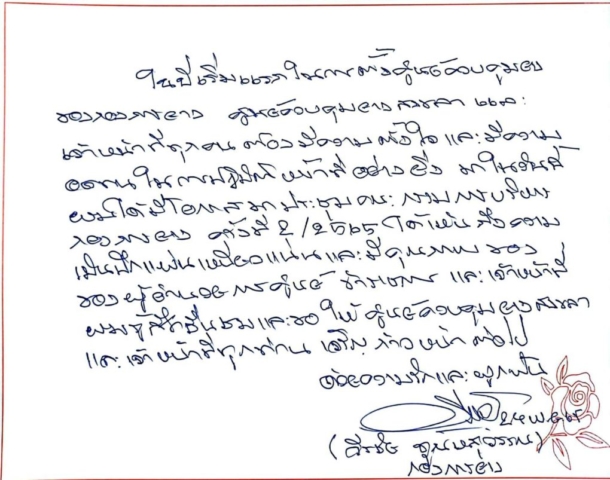 ในปีเริ่มแรกในการตั้งศูนย์ควบคุมยาง
ของกองการยาง ศูนย์ควบคุมยางสงขลา และ
เจ้าหน้าที่ทุกคน ต้องมีความตั้งใจ และมีความ
อดทนในการปฏิบัติหน้าที่อย่างยิ่ง มาในวันนี้
ผมได้มีโอกาสมาประชุมคณะกรรมการบริหาร
กองการยาง ครั้งที่ 2/2565 ได้เห็นถึงความ
เป็นปึกแผ่นเหนียวแน่นและมีคุณภาพ ของ
ของผู้อำนวยการศูนย์ ข้าราชการ และเจ้าหน้าที่
ผมรู้สึกชื่นชมและขอให้ศูนย์ควบคุมยางสงขลา
และเจ้าหน้าที่ทุกท่าน เจริญก้าวหน้าต่อไป
ด้วยความรักและผูกพัน
กองการยาง